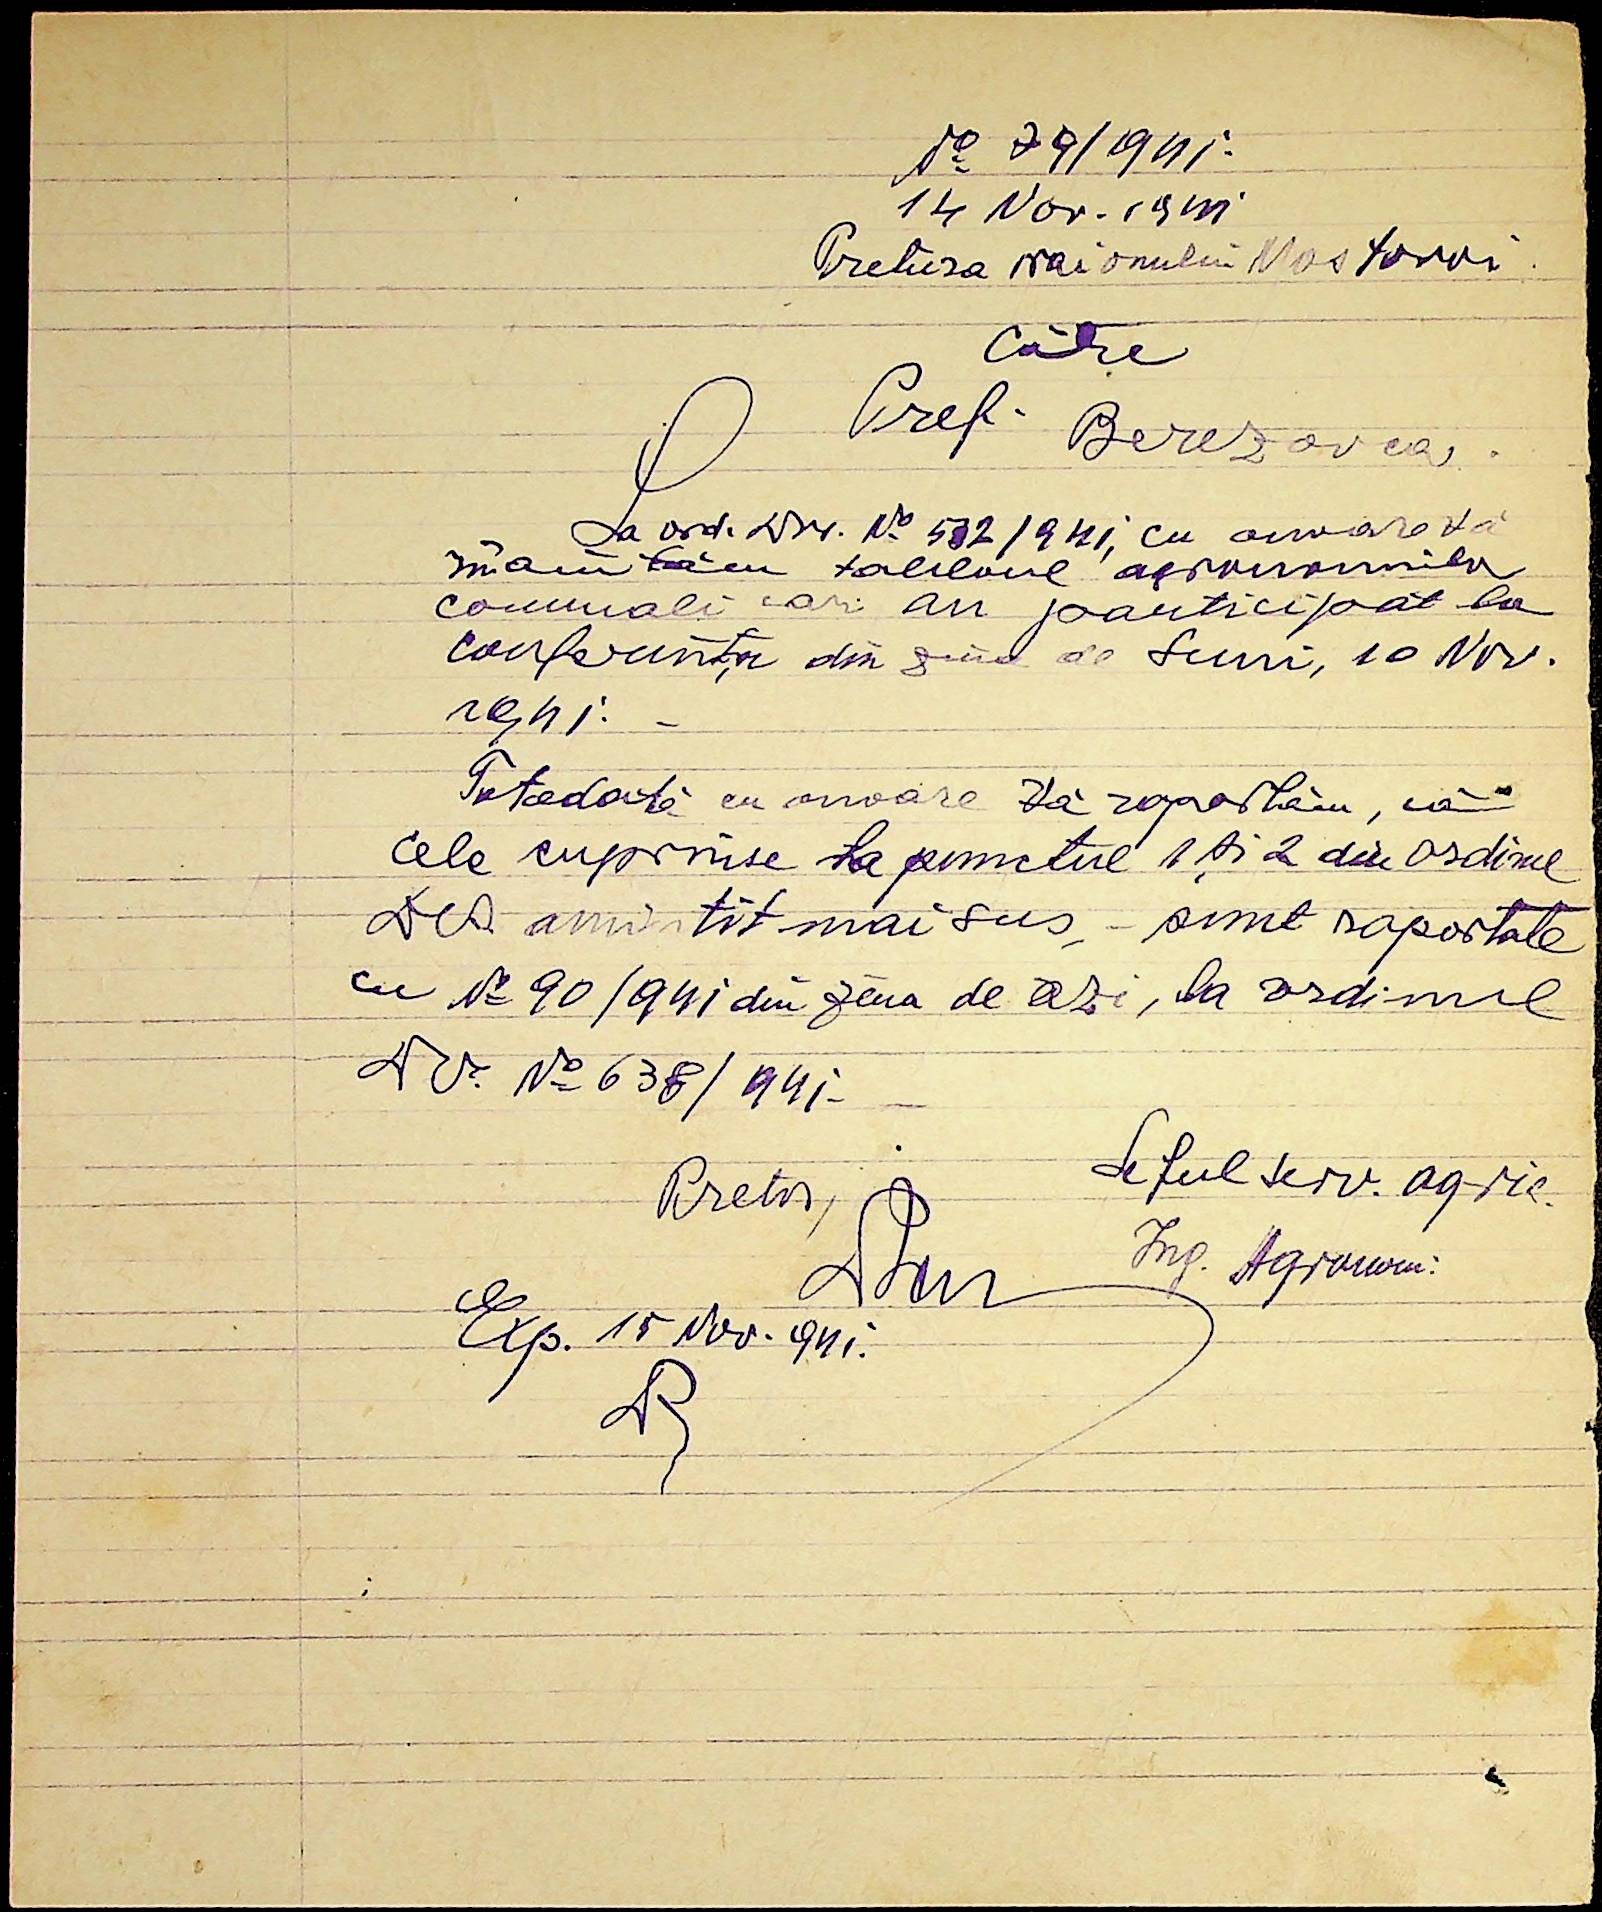 No 79/941.
14 Nov. 1941
Pretura raionului Mostovoi.
Către
Pref. Berezovca.
La ord. Dv. No 532/941, cu onoare vă
înaintăm tabloul agronomilor
comunali cari au participat la
conferința din ziua de Luni, 10 Nov.
1941. -
Totodată cu onoare vă raportăm, că
cele cuprinse la punctul 1 și 2 din ordinul
Dv. amintit mai sus, - sunt raportate
cu No 90/941 din ziua de azi, la ordinul
Dv. No 638/941. -
Pretor,
Șeful serv. agric.
Ing. Agronom:
Exp. 15 Nov. 941.